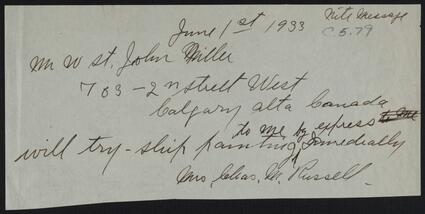 June 1st 1933
Nite Message
C.5.79
Mr W St. John Miller
703-2nd Street West
Calgary alta Canada
will try - ship painting to me, by express Immediatly
Mrs, Chas. M. Russell.